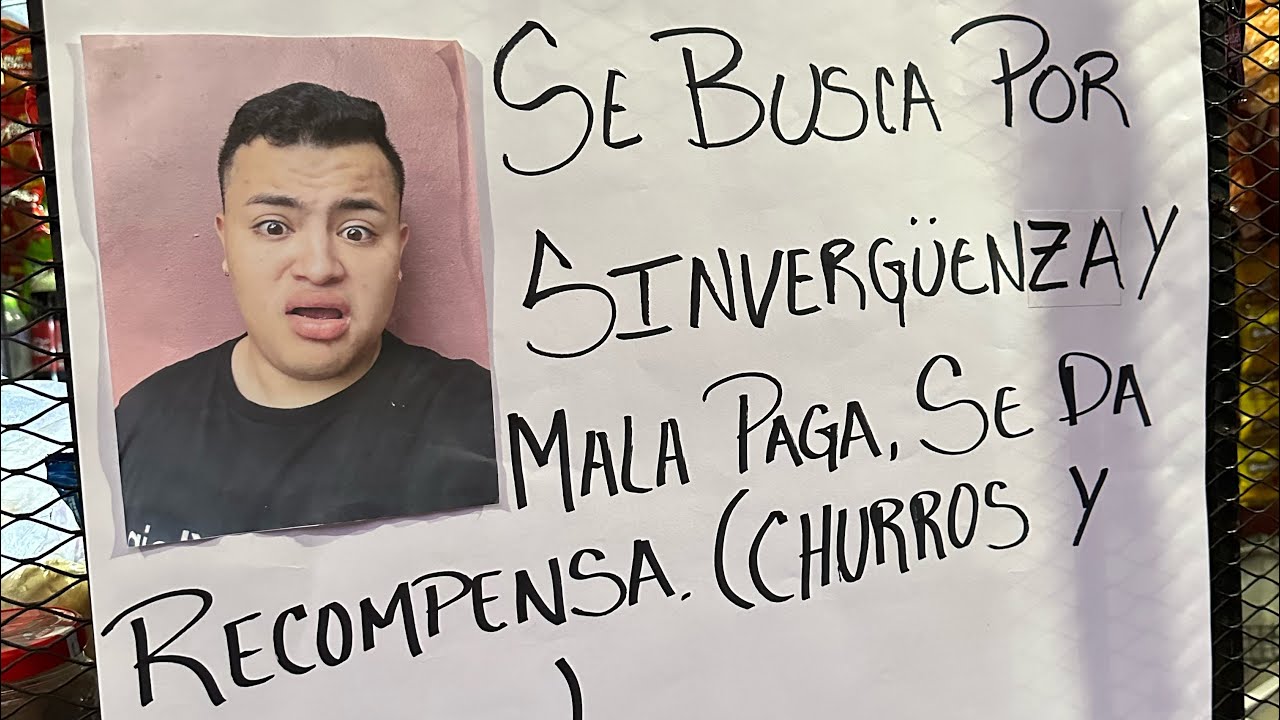 SE BUSCA POR
SINVERGÜENZA Y
MALA PAGA, SE DA
RECOMPENSA. (CHURROS Y
)